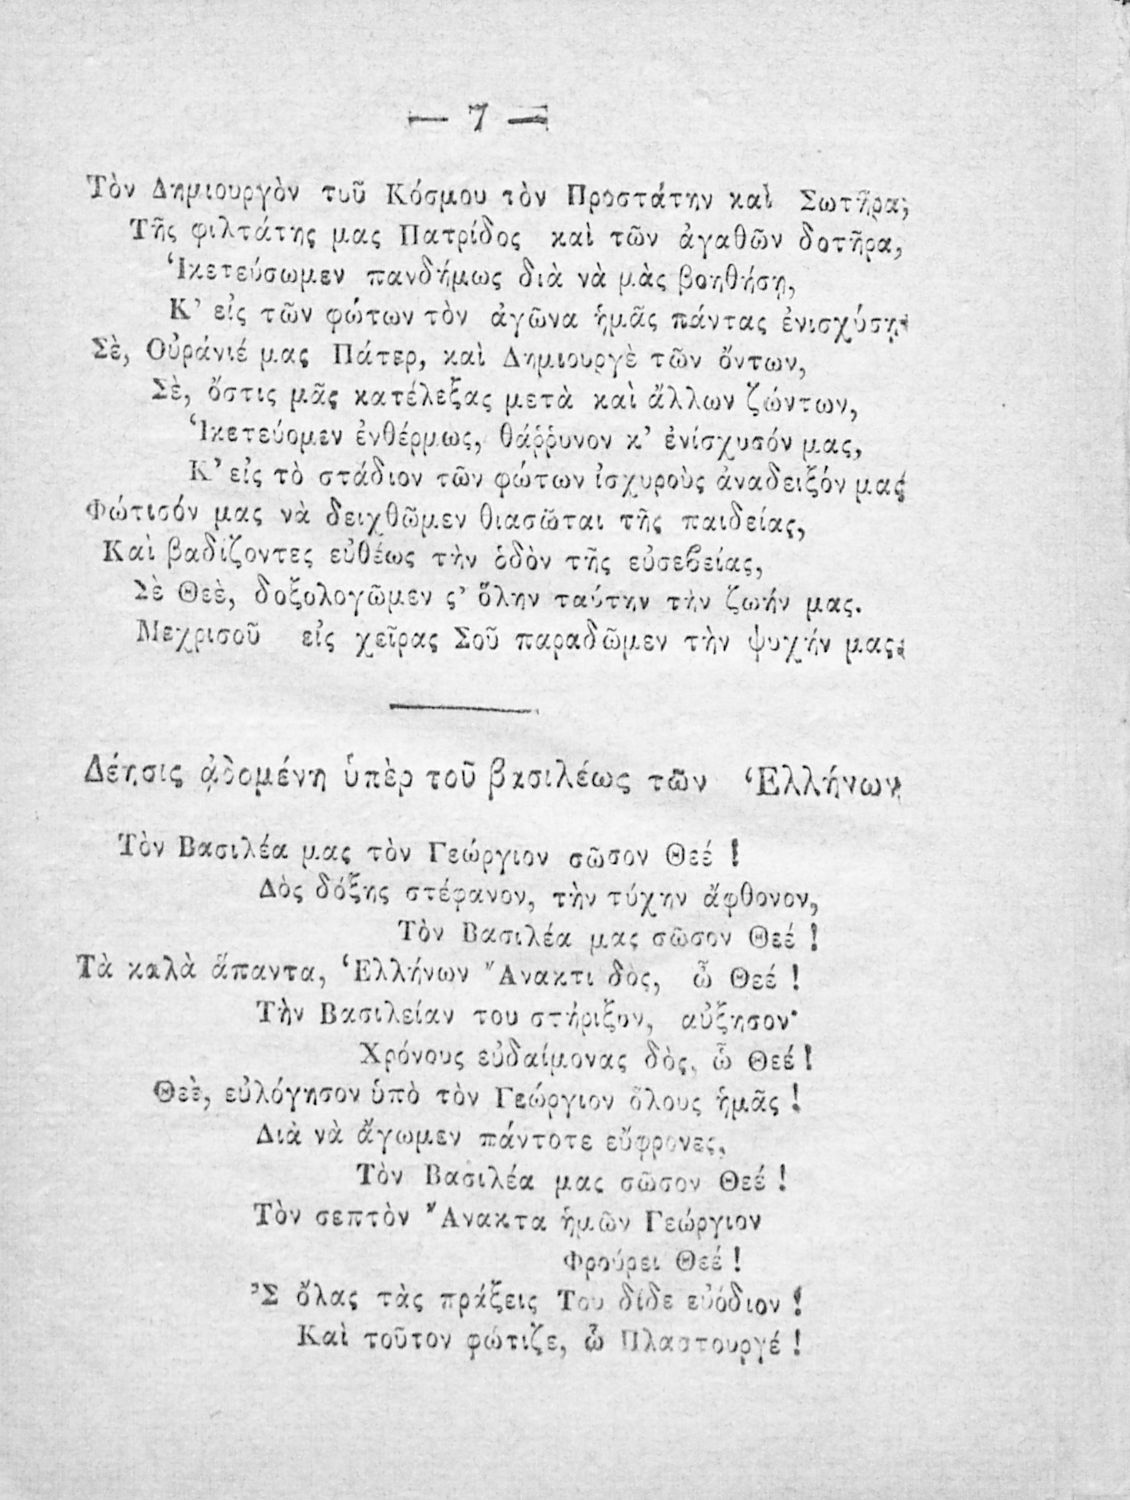 — 7 —
Τὸν Δημιουργὸν τοῦ Κόσμου τὸν Προστάτην καὶ Σωτῆρα,
Τῆς φιλτάτης μας Πατρίδος καὶ τῶν ἀγαθῶν δοτῆρα,
Ἱκετεύσωμεν πανδήμως διὰ νὰ μὰς βοηθήσῃ,
Κ’ εἰς τῶν φώτων τὸν ἀγῶνα ἡμᾶς πάντας ἐνισχύσῃ·
Σὲ, Οὐράνιέ μας Πάτερ, καὶ Δημιουργὲ τῶν ὄντων,
Σὲ, ὅστις μᾶς κατέλεξας μετὰ καὶ ἄλλων ζώντων,
Ἱκετεύομεν ἐνθέρμως, θάῤῥυνον κ’ ἐνίσχυσόν μας,
Κ’ εἰς τὸ στάδιον τῶν φώτων ἰσχυροὺς ἀναδειξόν μας·
Φώτισόν μας νὰ δειχθῶμεν θιασῶται τῆς παιδείας,
Καὶ βαδίζοντες εὐθέως τὴν ὁδὸν τῆς εὐσεβείας,
Σὲ Θεὲ, δοξολογῶμεν ς’ ὅλην ταύτην τὴν ζωήν μας.
Μεχρισοῦ εἰς χεῖρας Σοῦ παραδῶμεν τὴν ψυχήν μας.
Δέησις ᾀδομένη ὑπὲρ τοῦ βασιλέως τῶν Ἑλλήνων
Τὸν Βασιλέα μας τὸν Γεώργιον σῶσον Θεέ !
Δὸς δόξης στέφανον, τὴν τύχην ἄφθονον,
Τὸν Βασιλέα μας σῶσον Θεέ !
Τὰ καλὰ ἅπαντα, Ἑλλήνων Ἄνακτι δὸς, ὦ Θεέ !
Τὴν Βασιλείαν του στήριξον, αὔξησον·
Χρόνους εὐδαίμονας δὸς, ὦ Θεέ !
Θεὲ, εὐλόγησον ὑπὸ τὸν Γεώργιον ὅλους ἡμᾶς !
Διὰ νὰ ἄγωμεν πάντοτε εὔφρονες,
Τὸν Βασιλέα μας σῶσον Θεέ !
Τὸν σεπτὸν Ἄνακτα ἡμῶν Γεώργιον
Φρούρει Θεέ !
’Σ ὅλας τὰς πράξεις Του δίδε εὐόδιον !
Καὶ τοῦτον φώτιζε, ὦ Πλαστουργέ !